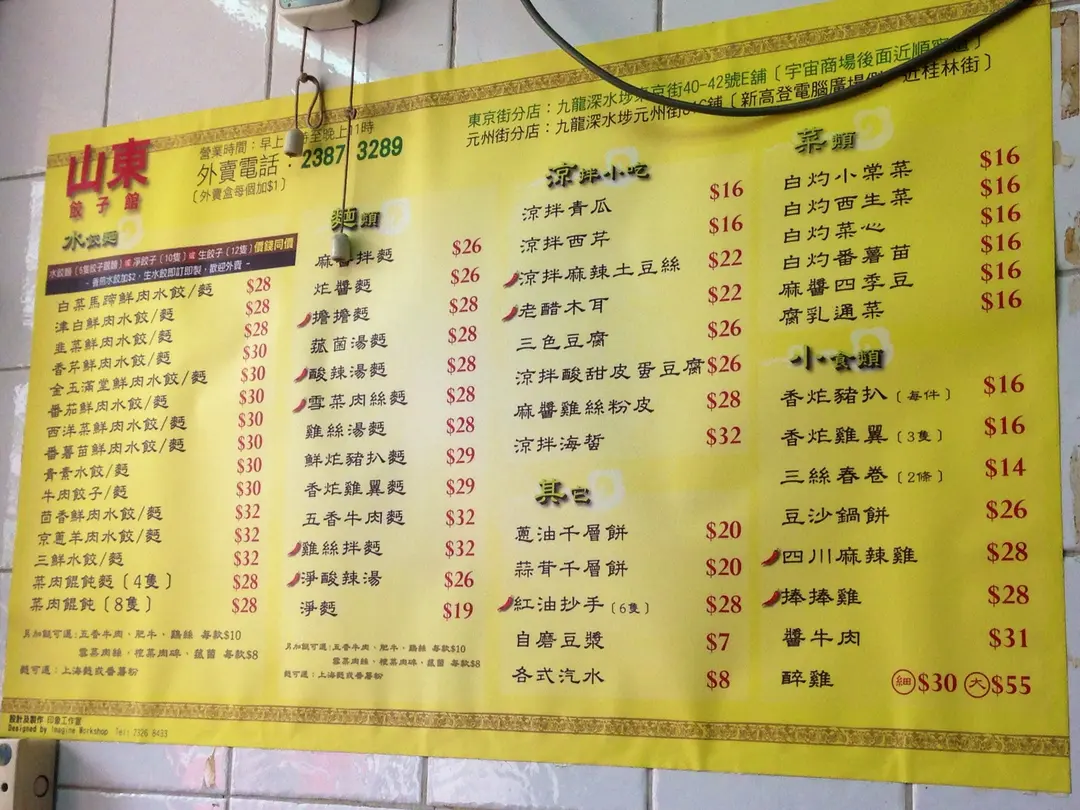 山東
餃子館
營業時間：早上 至晚上11時
外賣電話：2387 3289
〔外賣盒每個加$1〕
東京街分店：九龍深水埗東京街40-42號E舖〔宇宙商場後面近順寧道〕
元州街分店：九龍深水埗元州街 舖〔新高登電腦廣場側 近桂林街〕
水餃麵
水餃麵〔6隻餃子跟麵〕或淨餃子〔10隻〕或生餃子〔12隻〕價錢同價
- 香煎水餃加$2，生水餃即訂即製，歡迎外賣 -
白菜馬蹄鮮肉水餃/麵 $28
津白鮮肉水餃/麵 $28
韭菜鮮肉水餃/麵 $28
香芹鮮肉水餃/麵 $30
金玉滿堂鮮肉水餃/麵 $30
番茄鮮肉水餃/麵 $30
西洋菜鮮肉水餃/麵 $30
番薯苗鮮肉水餃/麵 $30
青素水餃/麵 $30
牛肉餃子/麵 $30
茴香鮮肉水餃/麵 $32
京蔥羊肉水餃/麵 $32
三鮮水餃/麵 $32
菜肉餛飩麵〔4隻〕 $28
菜肉餛飩〔8隻〕 $28
另加餸可選：五香牛肉、肥牛、鷄絲 每款$10
雪菜肉絲、榨菜肉碎、菰菌 每款$8
麵可選：上海麵或番薯粉
麵類
麻 拌麵 $26
炸醬麵 $26
擔擔麵 $28
菰菌湯麵 $28
酸辣湯麵 $28
雪菜肉絲麵 $28
雞絲湯麵 $28
鮮炸豬扒麵 $29
香炸雞翼麵 $29
五香牛肉麵 $32
雞絲拌麵 $32
淨酸辣湯 $26
淨麵 $19
另加餸可選：五香牛肉、肥牛、鷄絲 每款$10
雪菜肉絲、榨菜肉碎、菰菌 每款$8
麵可選：上海麵或番薯粉
涼拌小吃
涼拌青瓜 $16
涼拌西芹 $16
涼拌麻辣土豆絲 $22
老醋木耳 $22
三色豆腐 $26
涼拌酸甜皮蛋豆腐 $26
麻醬雞絲粉皮 $28
涼拌海蜇 $32
其它
蔥油千層餅 $20
蒜茸千層餅 $20
紅油抄手〔6隻〕 $28
自磨豆漿 $7
各式汽水 $8
菜類
白灼小棠菜 $16
白灼西生菜 $16
白灼菜心 $16
白灼番薯苗 $16
麻醬四季豆 $16
腐乳通菜 $16
小食類
香炸豬扒〔每件〕 $16
香炸雞翼〔3隻〕 $16
三絲春卷〔2條〕 $14
豆沙鍋餅 $26
四川麻辣雞 $28
捧捧雞 $28
醬牛肉 $31
醉雞 細$30 大$55
設計及製作 印象工作室
Designed by Imagine Workshop Tel: 2326 8433